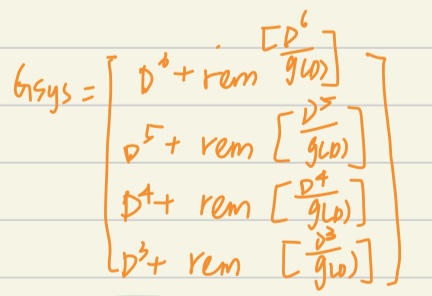 Gsys = [ D^6 + rem [D^6/g(D)]
D^5 + rem [D^5/g(D)]
D^4 + rem [D^4/g(D)]
D^3 + rem [D^3/g(D)] ]